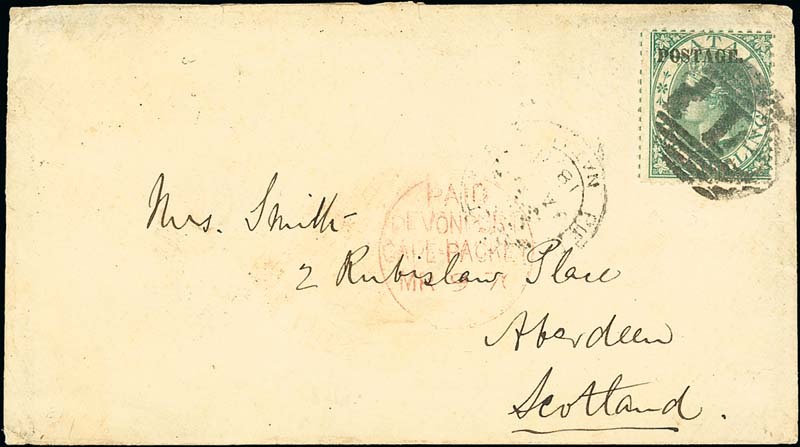 POSTAGE.
1
PAID
DEVONPORT
CAPE-PACKET
Mrs. Smith
2 Rubislaw Place
Aberdeen
Scotland.